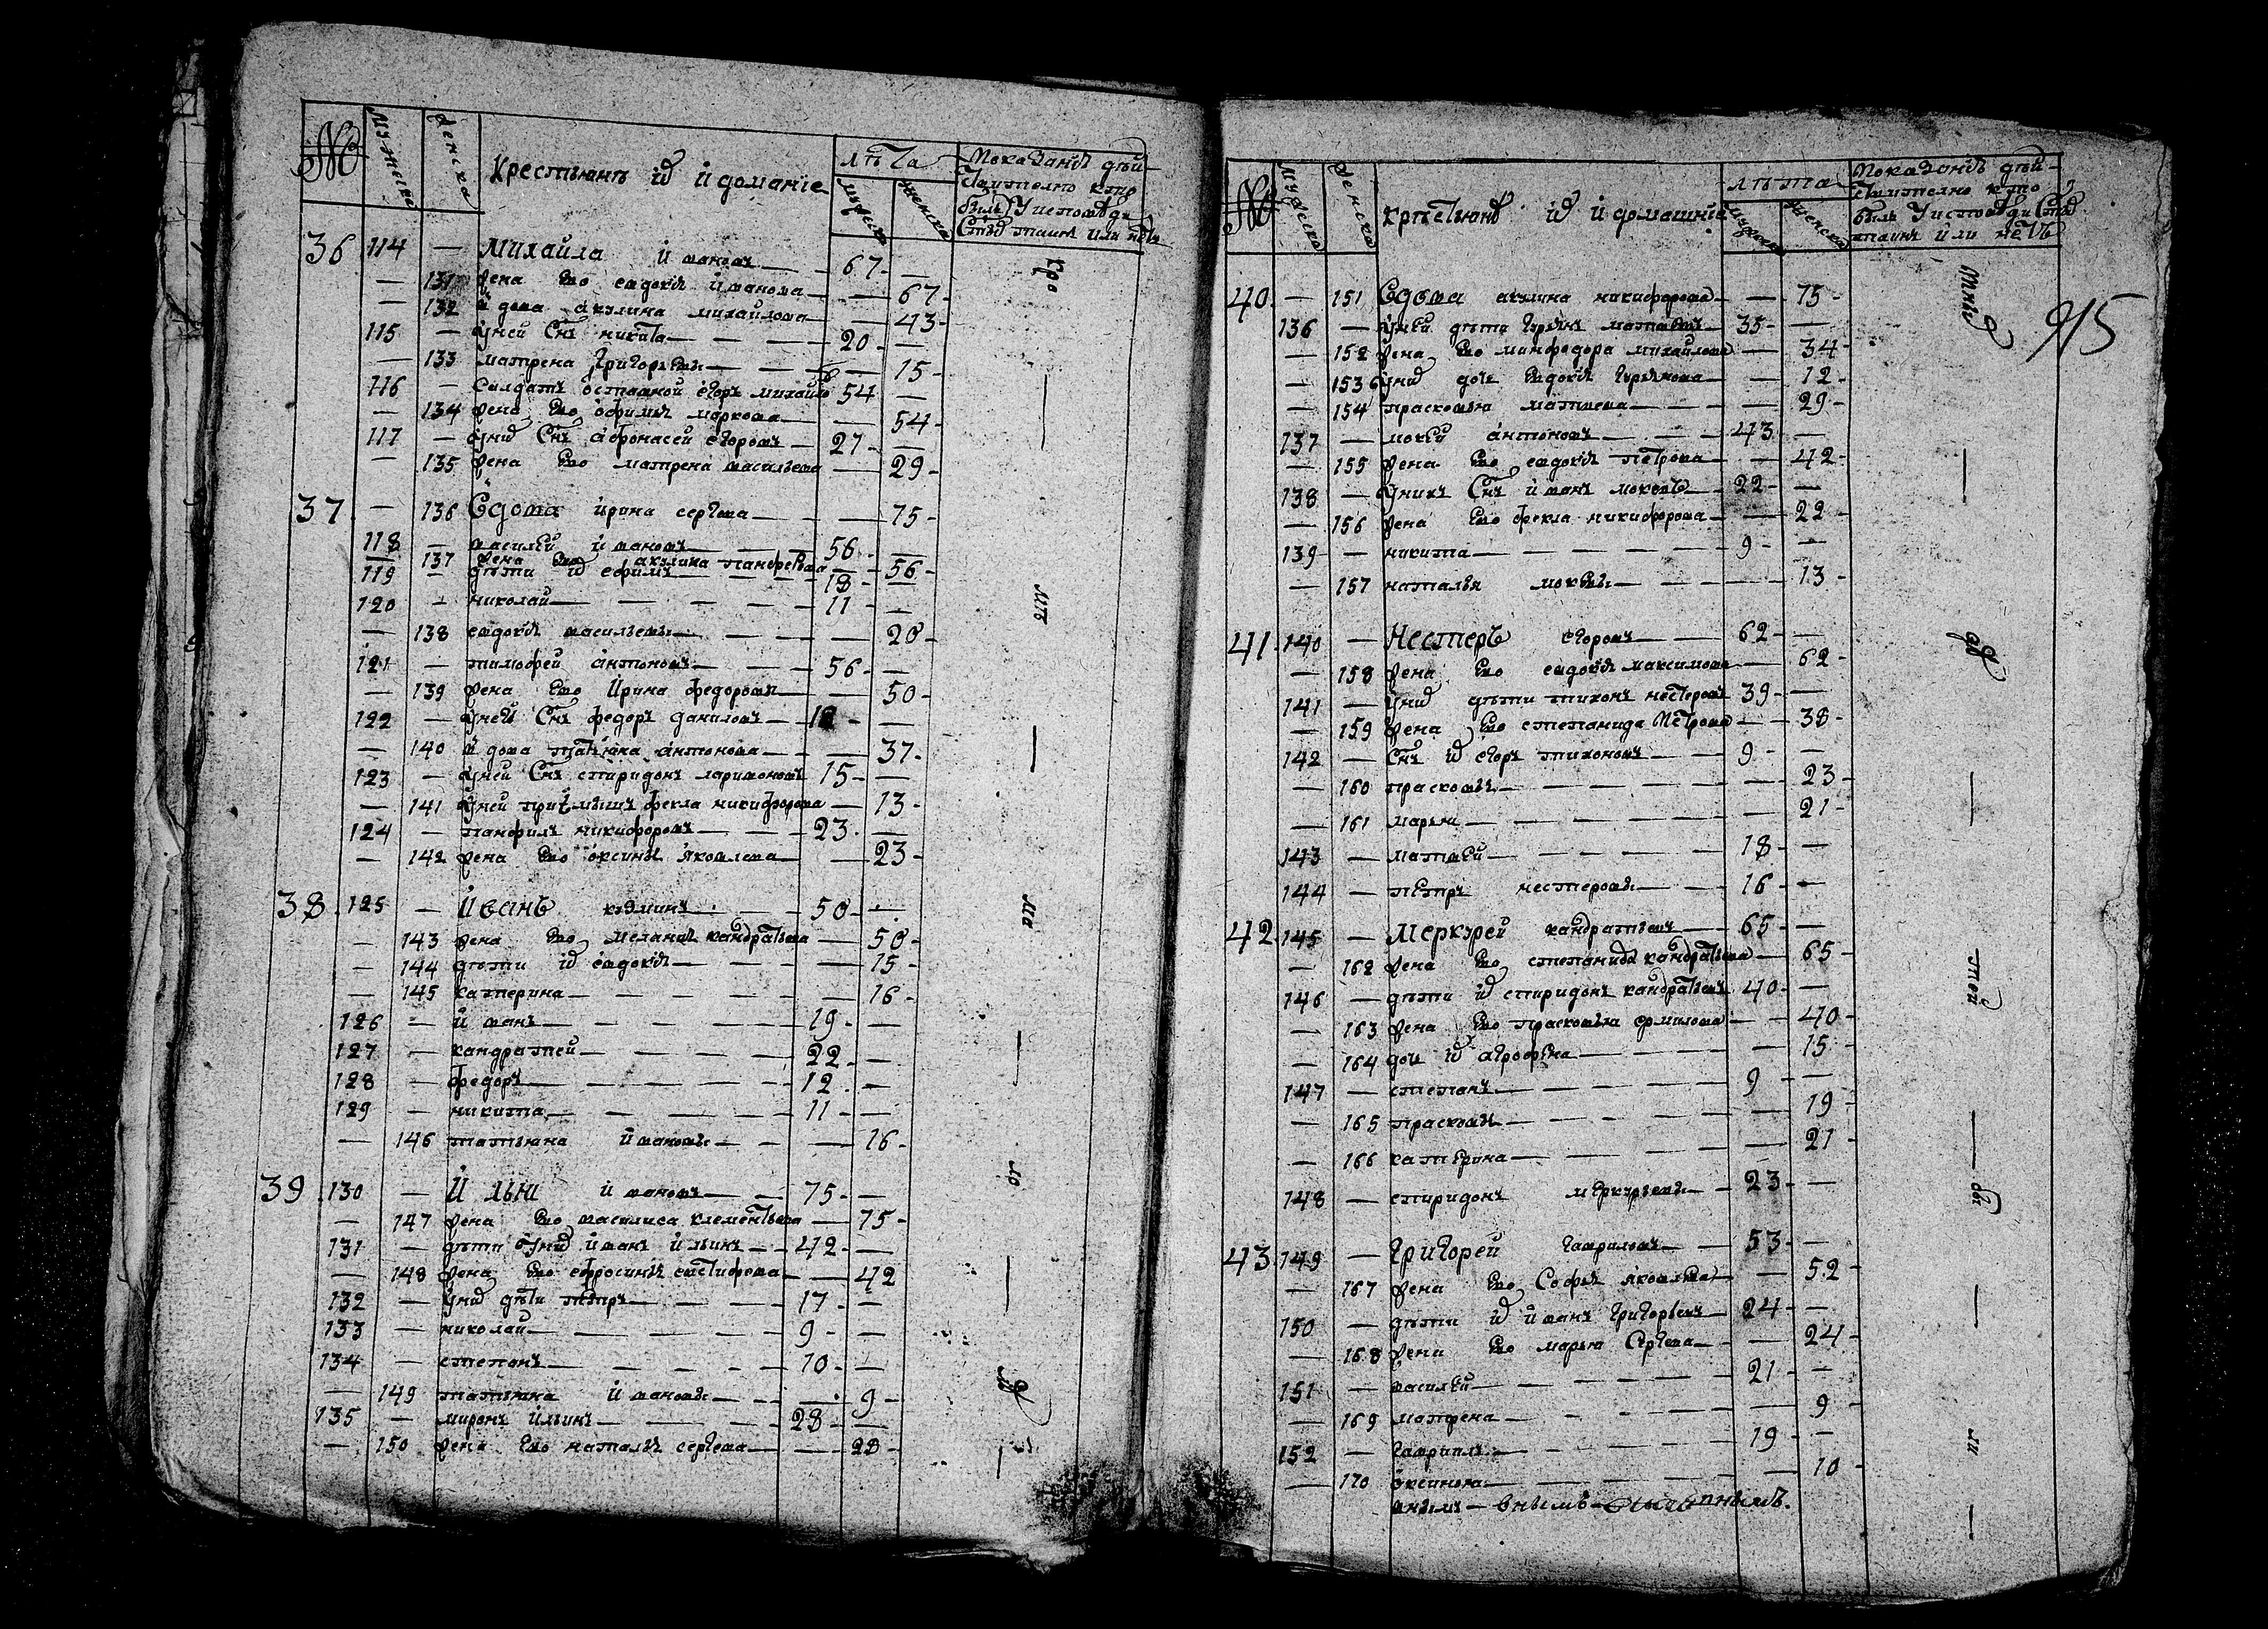 № мужеска женска Крестьянъ их и домание лѣта мужеска женска Показанiе дѣй-
ствително кто
былъ У исповѣди
Стых таинъ или нетъ
36 114 — Михайла ивановъ — 67 —
— 131 жена ево евдокiя иванова — — 67
— 132 вдова акулина михайлова — — 43
115 — унеи Снъ никита — 20 —
— 133 матрена григорьевы — — 15
116 — салдатъ оставной егоръ михайло 54 —
— 134 жена ево офимья маркова — — 54
117 — уних Снъ афонасеи егоровъ — 27 —
— 135 жена ево матрена васильева — — 29
37 — 136 Вдова ирина сергева — — 75
118 — василей ивановъ — 56 —
— 137 жена ево акулина панфелова — — 56
119 — дѣти их ефимъ — 18 —
120 — николай — 11 —
— 138 евдокiя васильевы — — 20
121 — тимофеи антоновъ — 56 —
— 139 жена ево Ирина федорова — — 50
122 — унеи Снъ федоръ даниловъ — —
— 140 вдова татьяна антонова — — 37
123 — унеи Снъ спиридонъ ларионовъ 15 —
— 141 унеи приемышъ фекла никифорова — 13
124 — панфилъ никифоровъ — 23 —
— 142 жена ево оксинья яковлева — — 23
38 125 — Иванъ кузминъ — 50 —
— 143 жена ево меланья кандратьева — 50
— 144 дѣти их евдокiя — — 15
— 145 катерина — — 16
126 — иванъ — 19 —
127 — кандратей — 22 —
128 — федоръ — 12 —
129 — никита — 11 —
— 146 татьяна ивановы — — 16
39 130 — Илья ивановъ — 75 —
— 147 жена ево василиса клементьева — 75
131 — дѣти уних иванъ ильинъ — 42 —
— 148 жена ево ефросинья евстифева — — 42
132 — уних дѣти петръ — 17 —
133 — николай — 9 —
134 — степанъ — 10 —
— 149 татьяна ивановы — — 9
135 — миронъ ильинъ — 28 —
— 150 жена ево наталья сергева — — 28
№ мужеска женска крѣстьянъ их и домашнiе лѣта мужеска женска Показанiе дѣй-
ствително кто
былъ У исповѣди Стых
таинъ или нетъ
915
40 — 151 Вдова акулина никифорова — — 75
136 — унеи дѣти гурьянъ матвевъ — 35 —
— 152 жена ево минфодора михайлова — 34
— 153 уних дочь евдокiя гурьянова — — 12
— 154 прасковья матвева — — 29
137 — мокей антоновъ — 43 —
— 155 жена ево евдокiя петрова — — 42
138 — уних Снъ иванъ мокевъ — 22 —
— 156 жена ево фекла никифорова — — 22
139 — никита — 9 —
— 157 наталья мокевы — — 13
41 140 — Нестеръ егоровъ — 62 —
— 158 жена ево евдокiя максимова — 62
141 — уних дѣти тихонъ нестеровъ 39 —
— 159 жена ево степанида Петрова — — 38
142 — Снъ их егоръ тихоновъ — 9 —
— 160 прасковья — — 23
— 161 марья — — 21
143 — матвей — 18 —
144 — петръ нестеровы — 16 —
42 145 — Меркурей кандратьевъ — 65 —
— 162 жена ево степанида кандратьева — 65
146 — дѣти их спиридонъ кандратьевъ 40 —
— 163 жена ево прасковья ермилова — — 40
— 164 дочь их аграфена — — 15
147 — степанъ — 9 —
— 165 прасковья — — 19
— 166 катерина — — 21
148 — спиридонъ меркурьевы — 23 —
43 149 — Григорей гавриловъ — 53 —
— 167 жена ево Софья яковлева — — 52
150 — дѣти их иванъ григорьевъ — 24 —
— 168 жена ево марья Сергева — — 24
151 — василей — 21 —
— 169 матрена — — 9
152 — гаврилъ — 19 —
— 170 оксинья — — 10